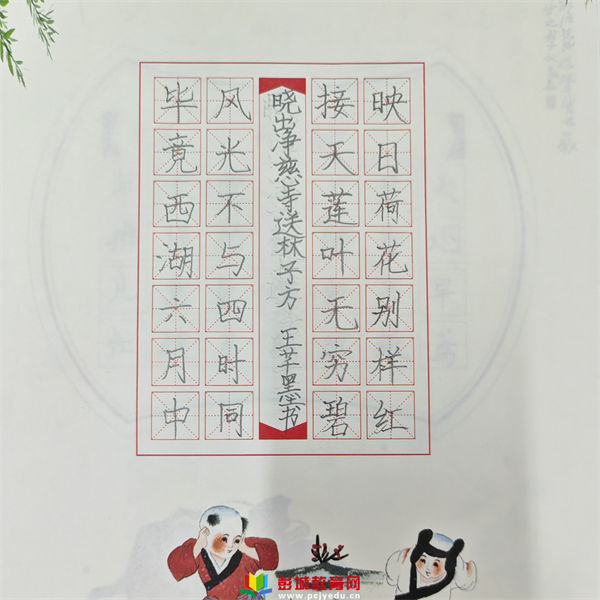 毕竟西湖六月中
风光不与四时同
晓出净慈寺送林子方 王芊墨书
接天莲叶无穷碧
映日荷花别样红
彭城教育网
www.pcjyedu.cn